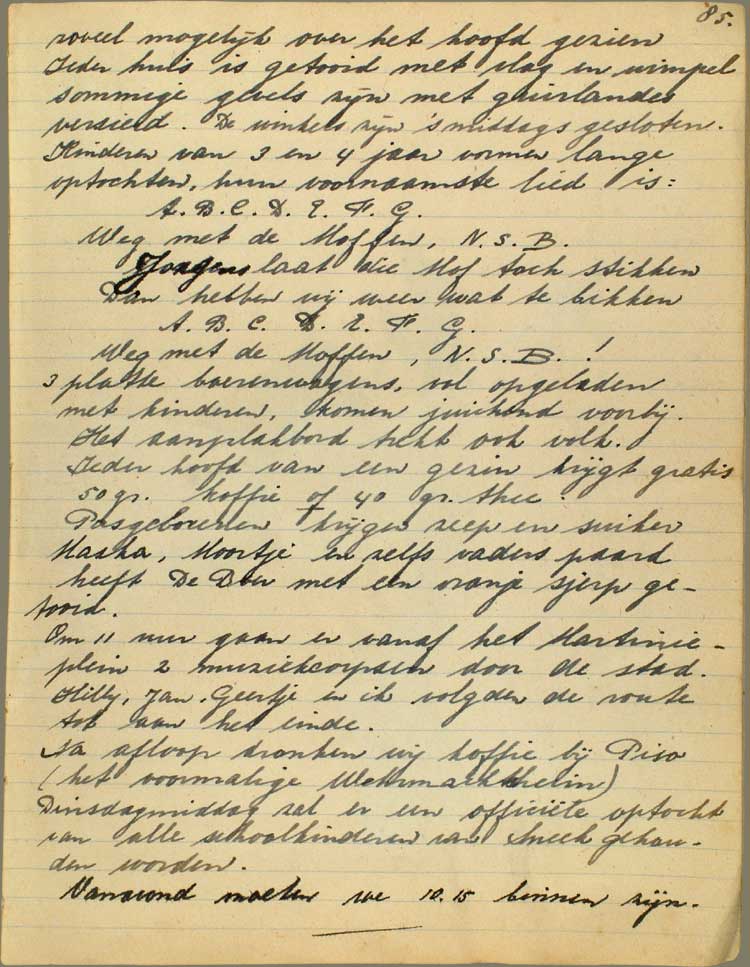 85.
zoveel mogelijk over het hoofd gezien
Ieder huis is getooid met vlag en wimpel
sommige gevels zijn met guirlandes
versierd. De winkels zijn 's middags gesloten.
Kinderen van 3 en 4 jaar vormen lange
optochten, hun voornaamste lied is:
A. B. C. D. E. F. G.
Weg met de Moffen, N. S. B.
Jongens laat die Mof toch stikken
Dan hebben wij weer wat te bikken
A. B. C. D. E. F. G.
Weg met de Moffen, N. S. B. !
3 platte boerenwagens, vol opgeladen
met kinderen, komen juichend voorbij.
Het aanplakbord trekt ook volk.
Ieder hoofd van een gezin krijgt gratis
50 gr. koffie of 40 gr. thee.
Pasgeborenen krijgen zeep en suiker
Maska, Moortje en zelfs vaders paard
heeft De Boer met een oranje sjerp ge-
tooid.
Om 11 uur gaan er vanaf het Martinie-
plein 2 muziekcorpsen door de stad.
Hilly, Jan, Geertje en ik volgden de route
tot aan het einde.
Na afloop dronken wij koffie bij Piso
(het voormalige Wehrmachtheim)
Dinsdagmiddag zal er een officiële optocht
van alle schoolkinderen van Sneek gehou-
den worden.
Vanavond moeten we 10.15 binnen zijn.